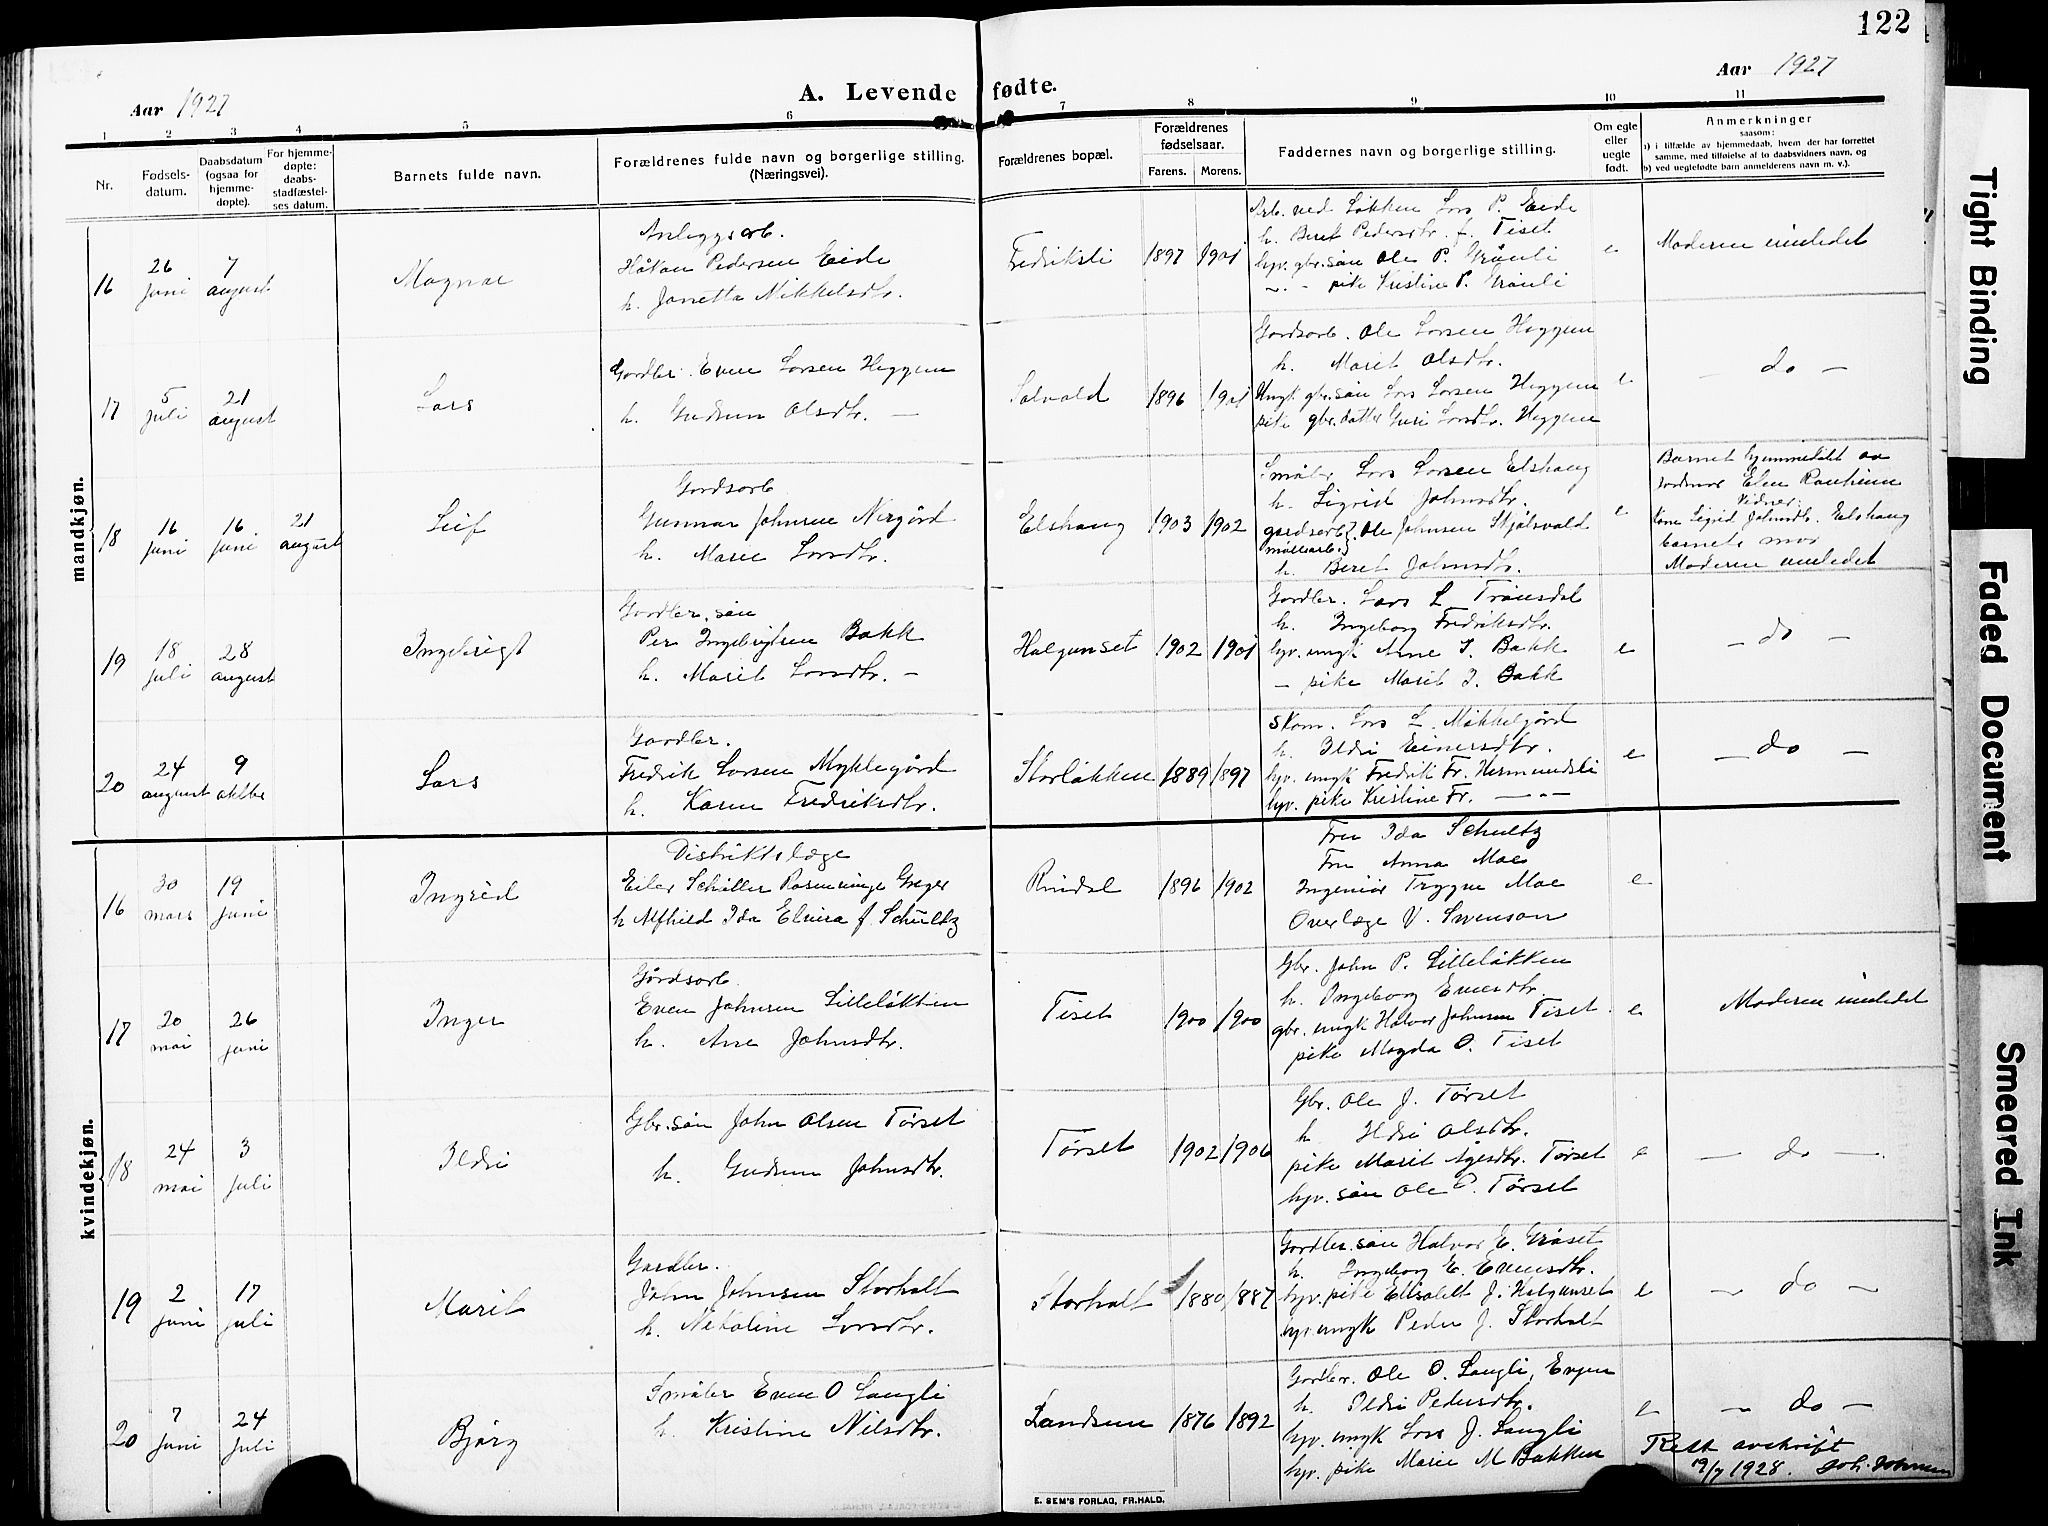 122
Aar 1927
A. Levende fødte.
Aar 1927
1 2 3 4 5 6 7 8 9 10 11
Nr.
Fødsels-
datum.
Daabsdatum
(ogsaa for
hjemme-
døpte).
For hjemme-
døpte:
daabs-
stadfæstel-
ses datum.
Barnets fulde navn.
Forældrenes fulde navn og borgerlige stilling.
(Næringsvei).
Forældrenes bopæl.
Forældrenes
fødselsaar.
Farens. Morens.
Faddernes navn og borgerlige stilling.
Om egte
eller
uegte
født.
Anmerkninger
saasom:
a) i tilfælde av hjemmedaab, hvem der har forrettet
samme, med tilføielse af to daabsvidners navn, og
b) ved uegtefødte barn anmelderens navn m. v.).
mandkjøn.
16
26
juni
7
august
Magnar
Anleggsarb.
Håkon Pedersen Eide
h. Janetta Mikkelsdtr.
Fredriksli
1897 1901
Arb. ved Løkken Lars P. Eide
h. Beret Pedersdtr. f. Tiset
hjv. gbr. søn Ole P. Grønli
— pike Kristine P. Grønli
e
Moderen innledet
17
5
juli
21
august
Lars
Gardbr. Even Larsen Heggem
h. Gudrun Olsdtr. —
Solvold
1896 1901
Gardsarb. Ole Larsen Heggem
h. Marit Olsdtr.
Ungk gbr. søn Lars Larsen Heggem
pike gbr. datter Guri Larsdtr. Heggem
e
— do —
18
16
juni
16
juni
21
august
Leif
Gardsarb
Gunnar Johnsen Nergård
h. Marie Larsdtr.
Elshaug
1903 1902
Småbr. Lars Larsen Elshaug
h. Sigrid Johnsdtr.
gardsarb. Ole Johnsen Stjølsvold
møllearb.
h. Beret Johnsdtr.
e
Barnet hjemmedøbt av
jordmor Elen Ranheim
Vidner:
Kone Sigrid Johnsdtr. Elshaug
barnets mor
Moderen innledet
19
18
juli
28
august
Ingebrigt
Gardbr. søn
Per Ingebrigtsen Bakk
h. Marit Larsdtr. —
Halgunset
1902 1901
Gardbr. Lars L. Trønsdal
h. Ingeborg Fredriksdtr.
hjv. ungk Arne I. Bakk
— pike Marit I. Bakk
e
— do —
20
24
august
9
oktbr
Lars
Gardbr.
Fredrik Larsen Myklegård
h. Karen Fredriksdtr.
Storløkken
1889 1897
Skom. Lars L. Mikkelgård
h. Ildri Einersdtr.
hjv. ungk Fredrik Fr. Hermundsli
hjv. pike Kristine Fr. — " —
e
— do —
kvindekjøn.
16
30
mars
19
juni
Ingrid
Distriktslæge
Eiler Schiller Rosenvinge Greger
h Alfhild Ida Elvira f. Schultz
Rindal
1896 1902
Fru Ida Schultz
Fru Anna Moe
Ingeniør Trygve Moe
Overlæge V. Swenson
e
17
20
mai
26
juni
Inger
Gårdsarb.
Even Johnsen Lilleløkken
h. Ane Johnsdtr.
Tiset
1900 1900
Gbr. John P. Lilleløkken
h. Ingeborg Evensdtr.
gbr. ungk Halvor Johnsen Tiset
pike Magda O. Tiset
e
Moderen innledet
18
24
mai
3
juli
Ildri
Gbr. søn John Olsen Tørset
h. Gudrun Johnsdtr.
Tørset
1902 1906
Gbr. Ole J. Tørset
h Ildri Olsdtr.
pike Marit Ågesdtr. Tørset
hjv. søn Ole P. Tørset
e
— do —
19
2
juni
17
juli
Marit
Gardbr.
John Johnsen Storholt
h. Nikoline Larsdtr.
Storholt
1880 1887
Gardbr. søn Halvor E. Grøset
h. Ingeborg E. Evensdtr.
hjv. pike Elisabet J. Halgunset
hjv. ungk Peder J. Storholt
e
— do —
20
7
juni
24
juli
Bjørg
Småbr Even O Langli
h. Kristine Nilsdtr.
Landsem
1876 1892
Gardbr. Ole O. Langli, Evjen
h. Ildri Pedersdtr.
hjv. ungk Lars J. Langli
hjv. pike Marie M Bakken
e
— do —
Rett avskrift
19/7 1928. Joh. Johnsen
E. SEM'S FORLAG, FR.HALD.
Tight Binding
Faded Document
Smeared Ink